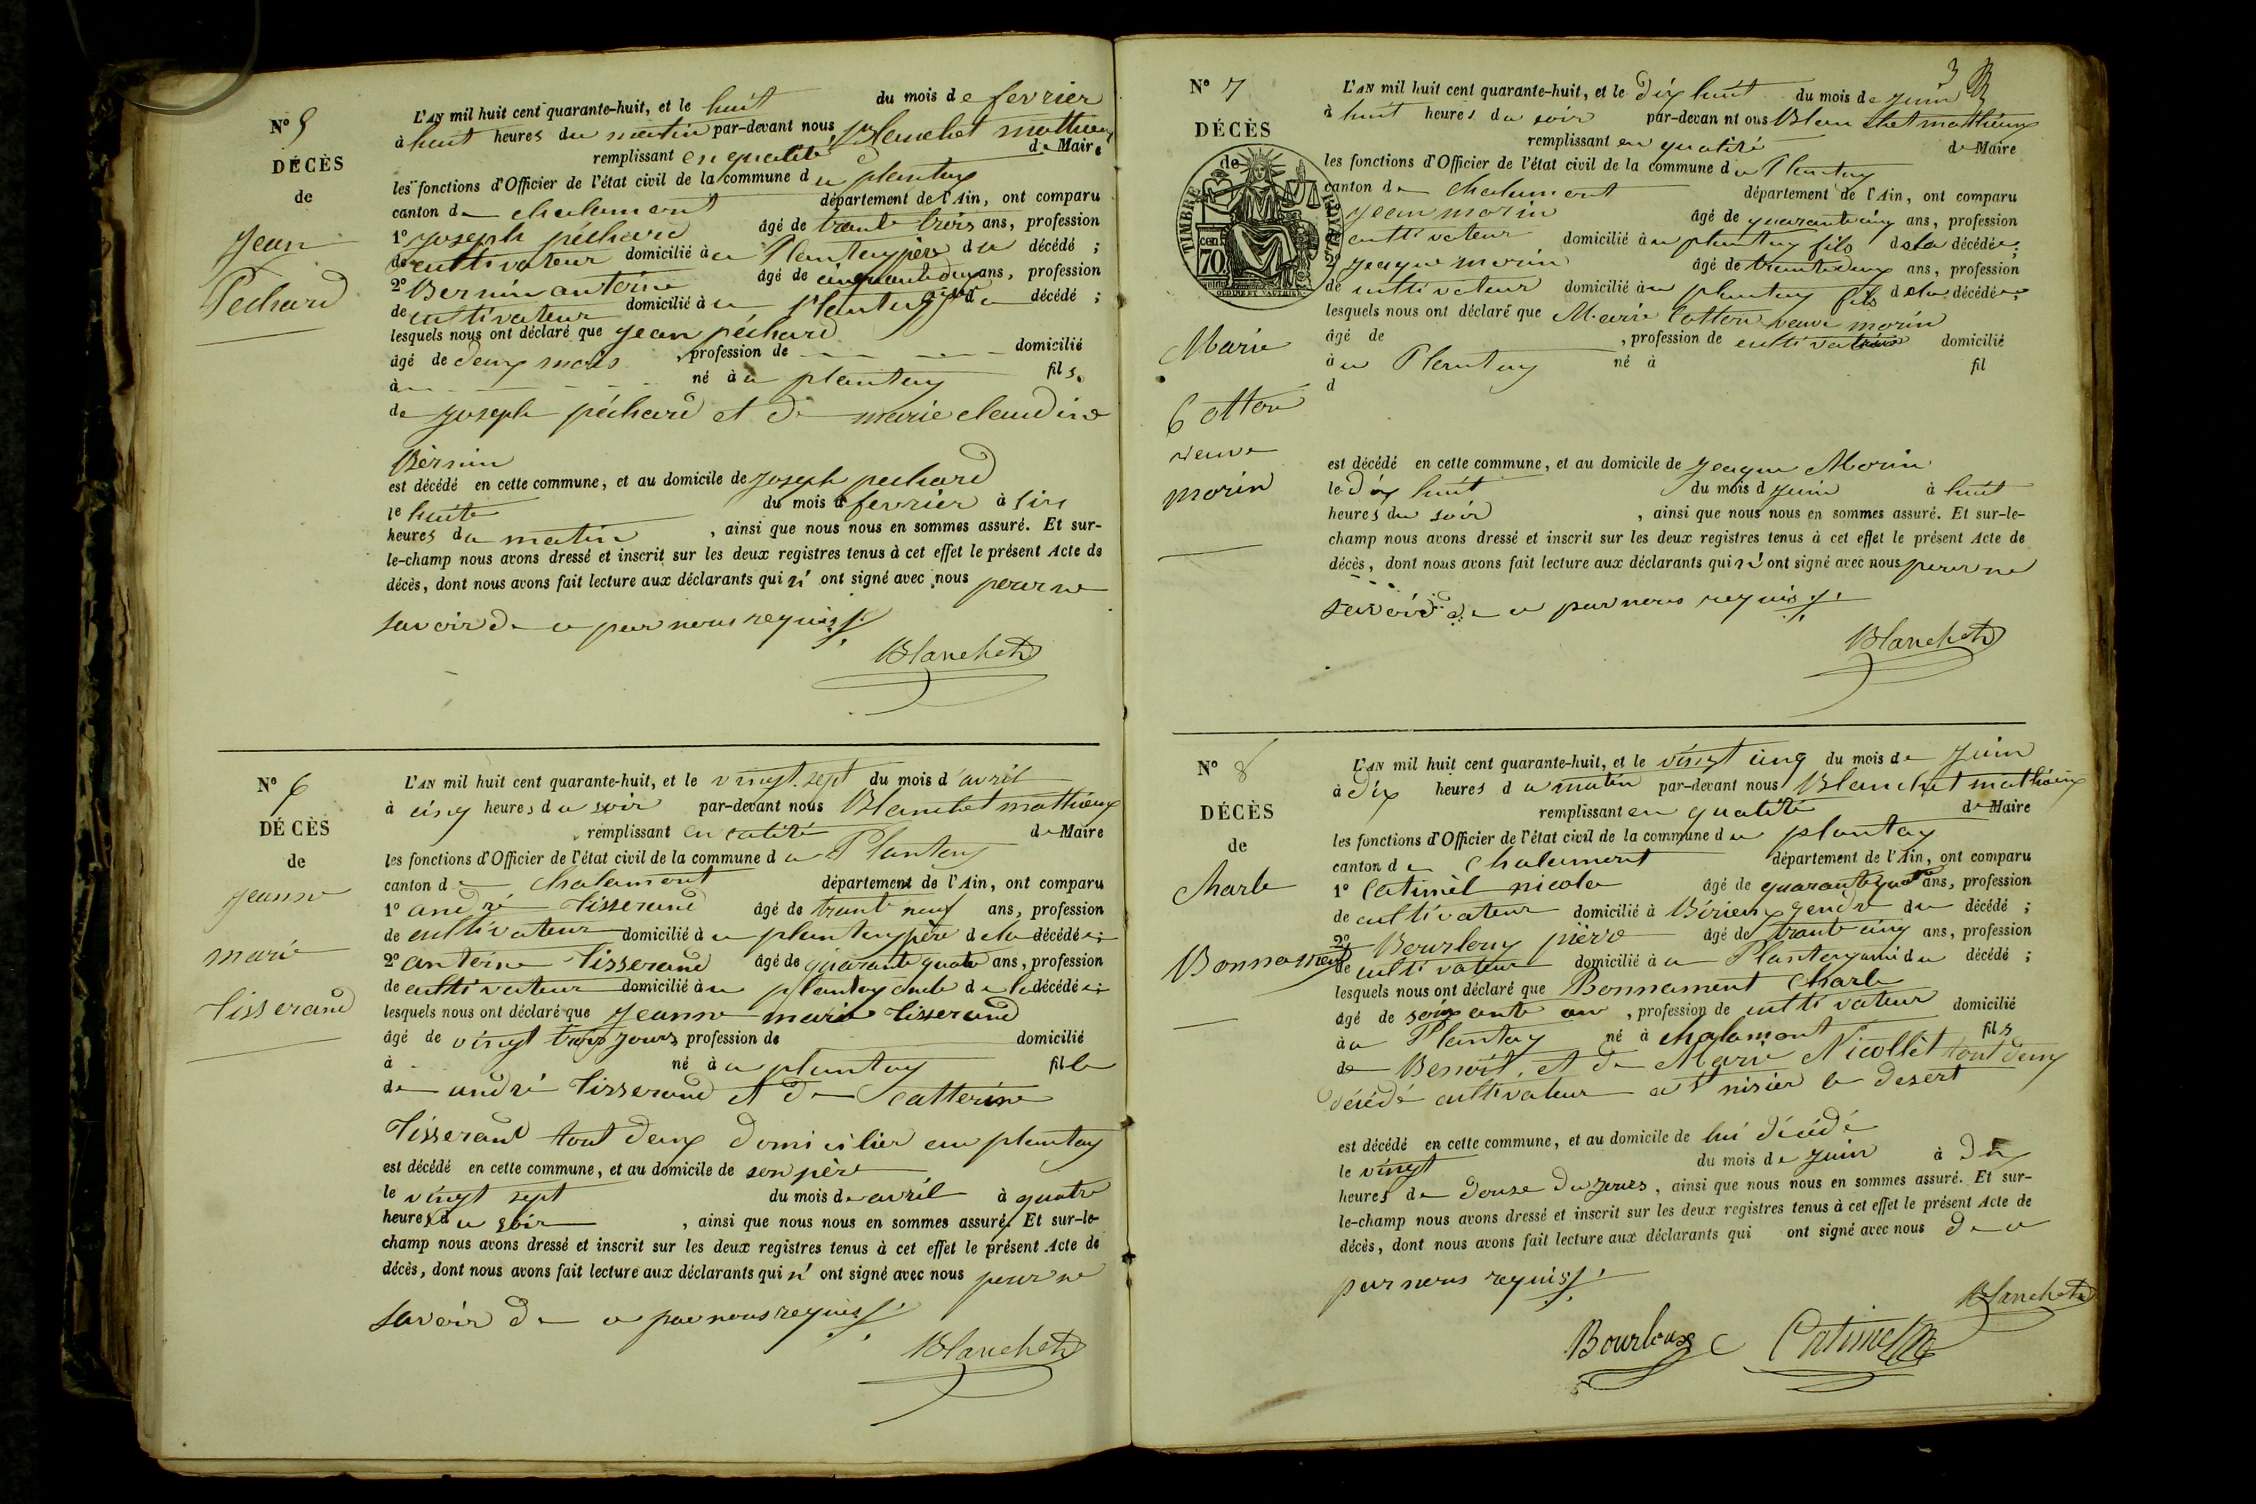 N° 5
DÉCÈS
de
Jean
Pechard
L'AN mil huit cent quarante-huit, et le huit du mois de fevrier
à huit heures du matin par-devant nous Blanchet mathieux
remplissant en qualité de Maire
les fonctions d'Officier de l'état civil de la commune du plantay
canton de chalamont département de l'Ain, ont comparu
1° joseph péchard âgé de trante trois ans, profession
de cultivateur domicilié àu Plantay père du décédé ;
2° Bernin antoine âgé de cinquante deux ans, profession
de cultivateur domicilié àu Plantay du décédé ;
lesquels nous ont déclaré que jean péchard
âgé de deux mois , profession de domicilié
à né àu plantay fils
de joseph péchard et de marie claudine
Bernin
est décédé en cette commune, et au domicile de joseph pechard
le huite du mois de fevrier à six
heures du matin , ainsi que nous nous en sommes assuré. Et sur-
le-champ nous avons dressé et inscrit sur les deux registres tenus à cet effet le présent Acte de
décès, dont nous avons fait lecture aux déclarants qui n' ont signé avec nous pour ne
savoir de ce par nous requis
Blanchet
N° 6
DÉCÈS
de
jeanne
marie
tisserand
L'AN mil huit cent quarante-huit, et le vingt sept du mois d'avril
à cinq heures du soir par-devant nous Blanchet mathieux
remplissant en catité de Maire
les fonctions d'Officier de l'état civil de la commune du Plantay
canton de chalamont département de l'Ain, ont comparu
1° andré tisserand âgé de trante neuf ans, profession
de cultivateur domicilié àu plantay père de la décédée ;
2° antoine tisserand âgé de quarante quatre ans, profession
de cultivateur domicilié àu plantay oncle de la décédée ;
lesquels nous ont déclaré que jeanne marie tisserand
âgé de vingt trois jours profession de domicilié
à né àu plantay fille
de andré tisserand et de catterine
tisserand tout deux domicilier au plantay
est décédé en cette commune, et au domicile de son père
le vingt sept du mois de avril à quatre
heures du soir , ainsi que nous nous en sommes assuré. Et sur-le-
champ nous avons dressé et inscrit sur les deux registres tenus à cet effet le présent Acte de
décès, dont nous avons fait lecture aux déclarants qui n' ont signé avec nous pour ne
savoir de ce par nous requis
Blanchet
3
N° 7
DÉCÈS
de
TIMBRE ROYAL
cen.
70
Marie
Cotton
veuve
morin
L'AN mil huit cent quarante-huit, et le dix huit du mois de juin
à huit heures du soir par-devan nt ous Blanchet mathieux
remplissant en qualité de Maire
les fonctions d'Officier de l'état civil de la commune du Plantay
canton de chalamont département de l'Ain, ont comparu
jean morin âgé de quarante cinq ans, profession
de cultivateur domicilié àu plantay fils de la décédée ;
2° jeaque morin âgé de trante deux ans, profession
de cultivateur domicilié àu plantay fils de la décédée ;
lesquels nous ont déclaré que Marie Cotton veuve morin
âgé de , profession de cultivatrice domicilié
àu Plantay né à fil
d
est décédé en cette commune, et au domicile de jeaque Morin
le dix huit du mois d juin à huit
heures du soir , ainsi que nous nous en sommes assuré. Et sur-le-
champ nous avons dressé et inscrit sur les deux registres tenus à cet effet le présent Acte de
décès, dont nous avons fait lecture aux déclarants qui n' ont signé avec nous pour ne
savoir de ce par nous requis
Blanchet
N° 8
DÉCÈS
de
charle
Bonnament
L'AN mil huit cent quarante-huit, et le vingt cinq du mois de juin
à dix heures du matin par-devant nous Blanchet mathieux
remplissant en qualité de Maire
les fonctions d'Officier de l'état civil de la commune du plantay
canton de Chalamont département de l'Ain, ont comparu
1° catimel nicola âgé de quarante quatre ans, profession
de cultivateur domicilié à Birieux gendre du décédé ;
2° Bourlouy pierre âgé de trante cinq ans, profession
de cultivateur domicilié àu Plantay ami du décédé ;
lesquels nous ont déclaré que Bonnament Charle
âgé de soixante an , profession de cultivateur domicilié
àu Plantay né à chalamont fils
de Benoit et de Marie Nicollet tout deux
décédé cultivateur a st nisier le desert
est décédé en cette commune, et au domicile de lui décédé
le vingt du mois de juin à dix
heures de douse du jours , ainsi que nous nous en sommes assuré. Et sur-
le-champ nous avons dressé et inscrit sur les deux registres tenus à cet effet le présent Acte de
décès, dont nous avons fait lecture aux déclarants qui ont signé avec nous de ce
par nous requis
Blanchet
Bourloux Catimel